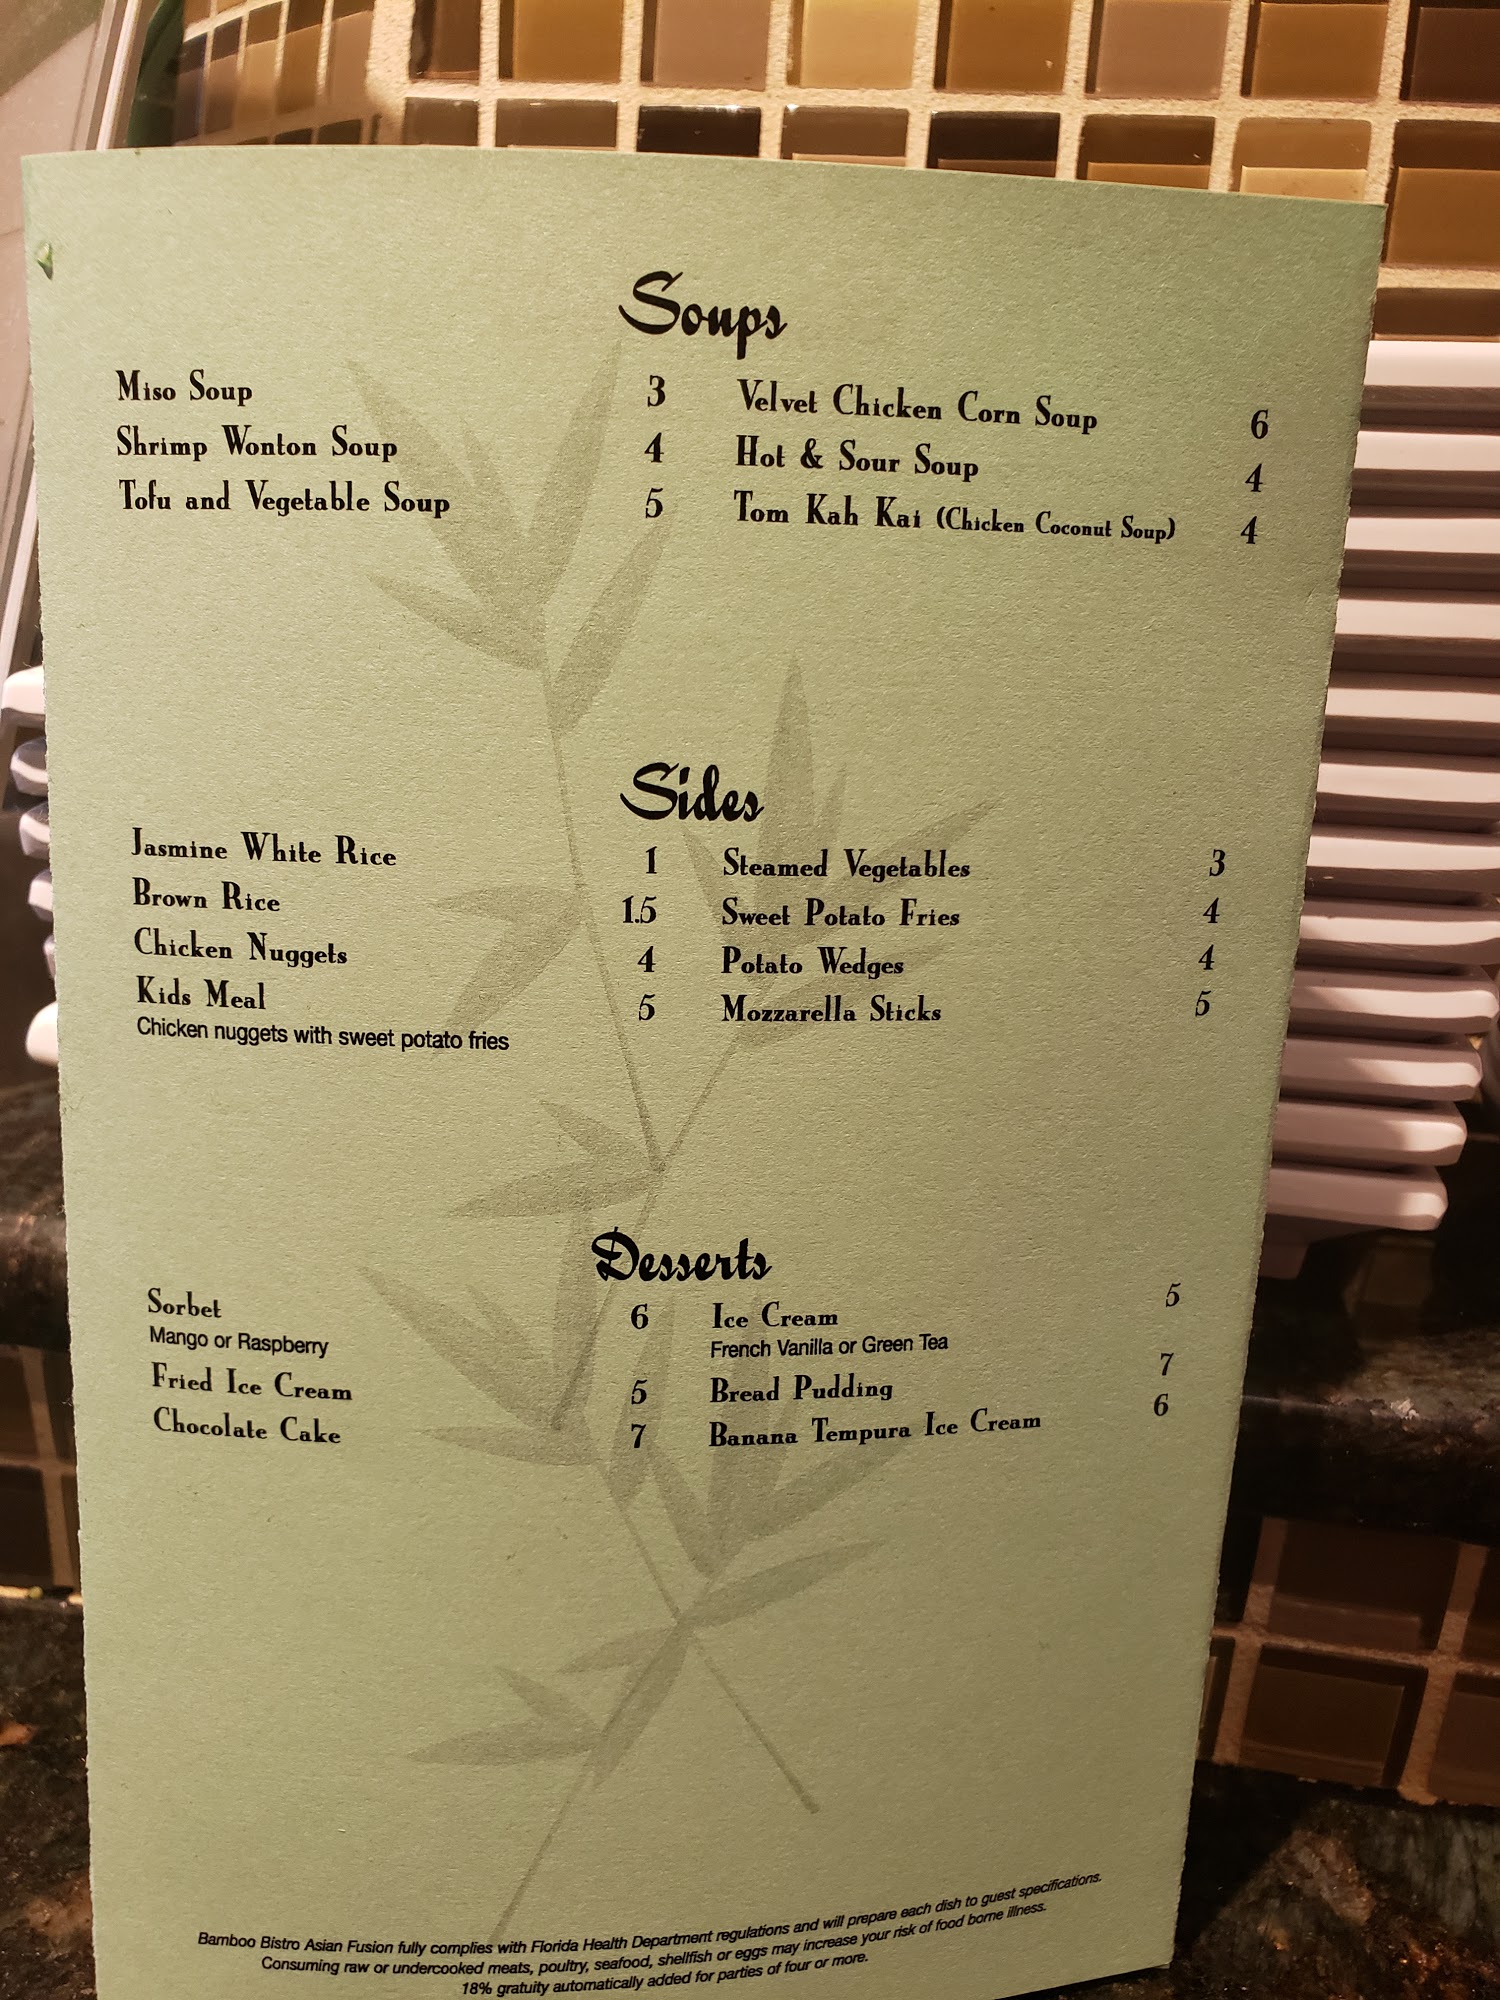 Soups
Miso Soup 3
Shrimp Wonton Soup 4
Tofu and Vegetable Soup 5
Velvet Chicken Corn Soup 6
Hot & Sour Soup 4
Tom Kah Kai (Chicken Coconut Soup) 4
Sides
Jasmine White Rice 1
Brown Rice 1.5
Chicken Nuggets 4
Kids Meal 5
Chicken nuggets with sweet potato fries
Steamed Vegetables 3
Sweet Potato Fries 4
Potato Wedges 4
Mozzarella Sticks 5
Desserts
Sorbet 6
Mango or Raspberry
Fried Ice Cream 5
Chocolate Cake 7
Ice Cream 5
French Vanilla or Green Tea
Bread Pudding 7
Banana Tempura Ice Cream 6
Bamboo Bistro Asian Fusion fully complies with Florida Health Department regulations and will prepare each dish to guest specifications.
Consuming raw or undercooked meats, poultry, seafood, shellfish or eggs may increase your risk of food borne illness.
18% gratuity automatically added for parties of four or more.